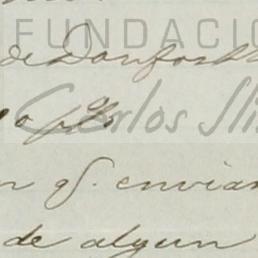 FUNDACIÓ
de Danforth
Carlos Sli
n q. enviar
de algun